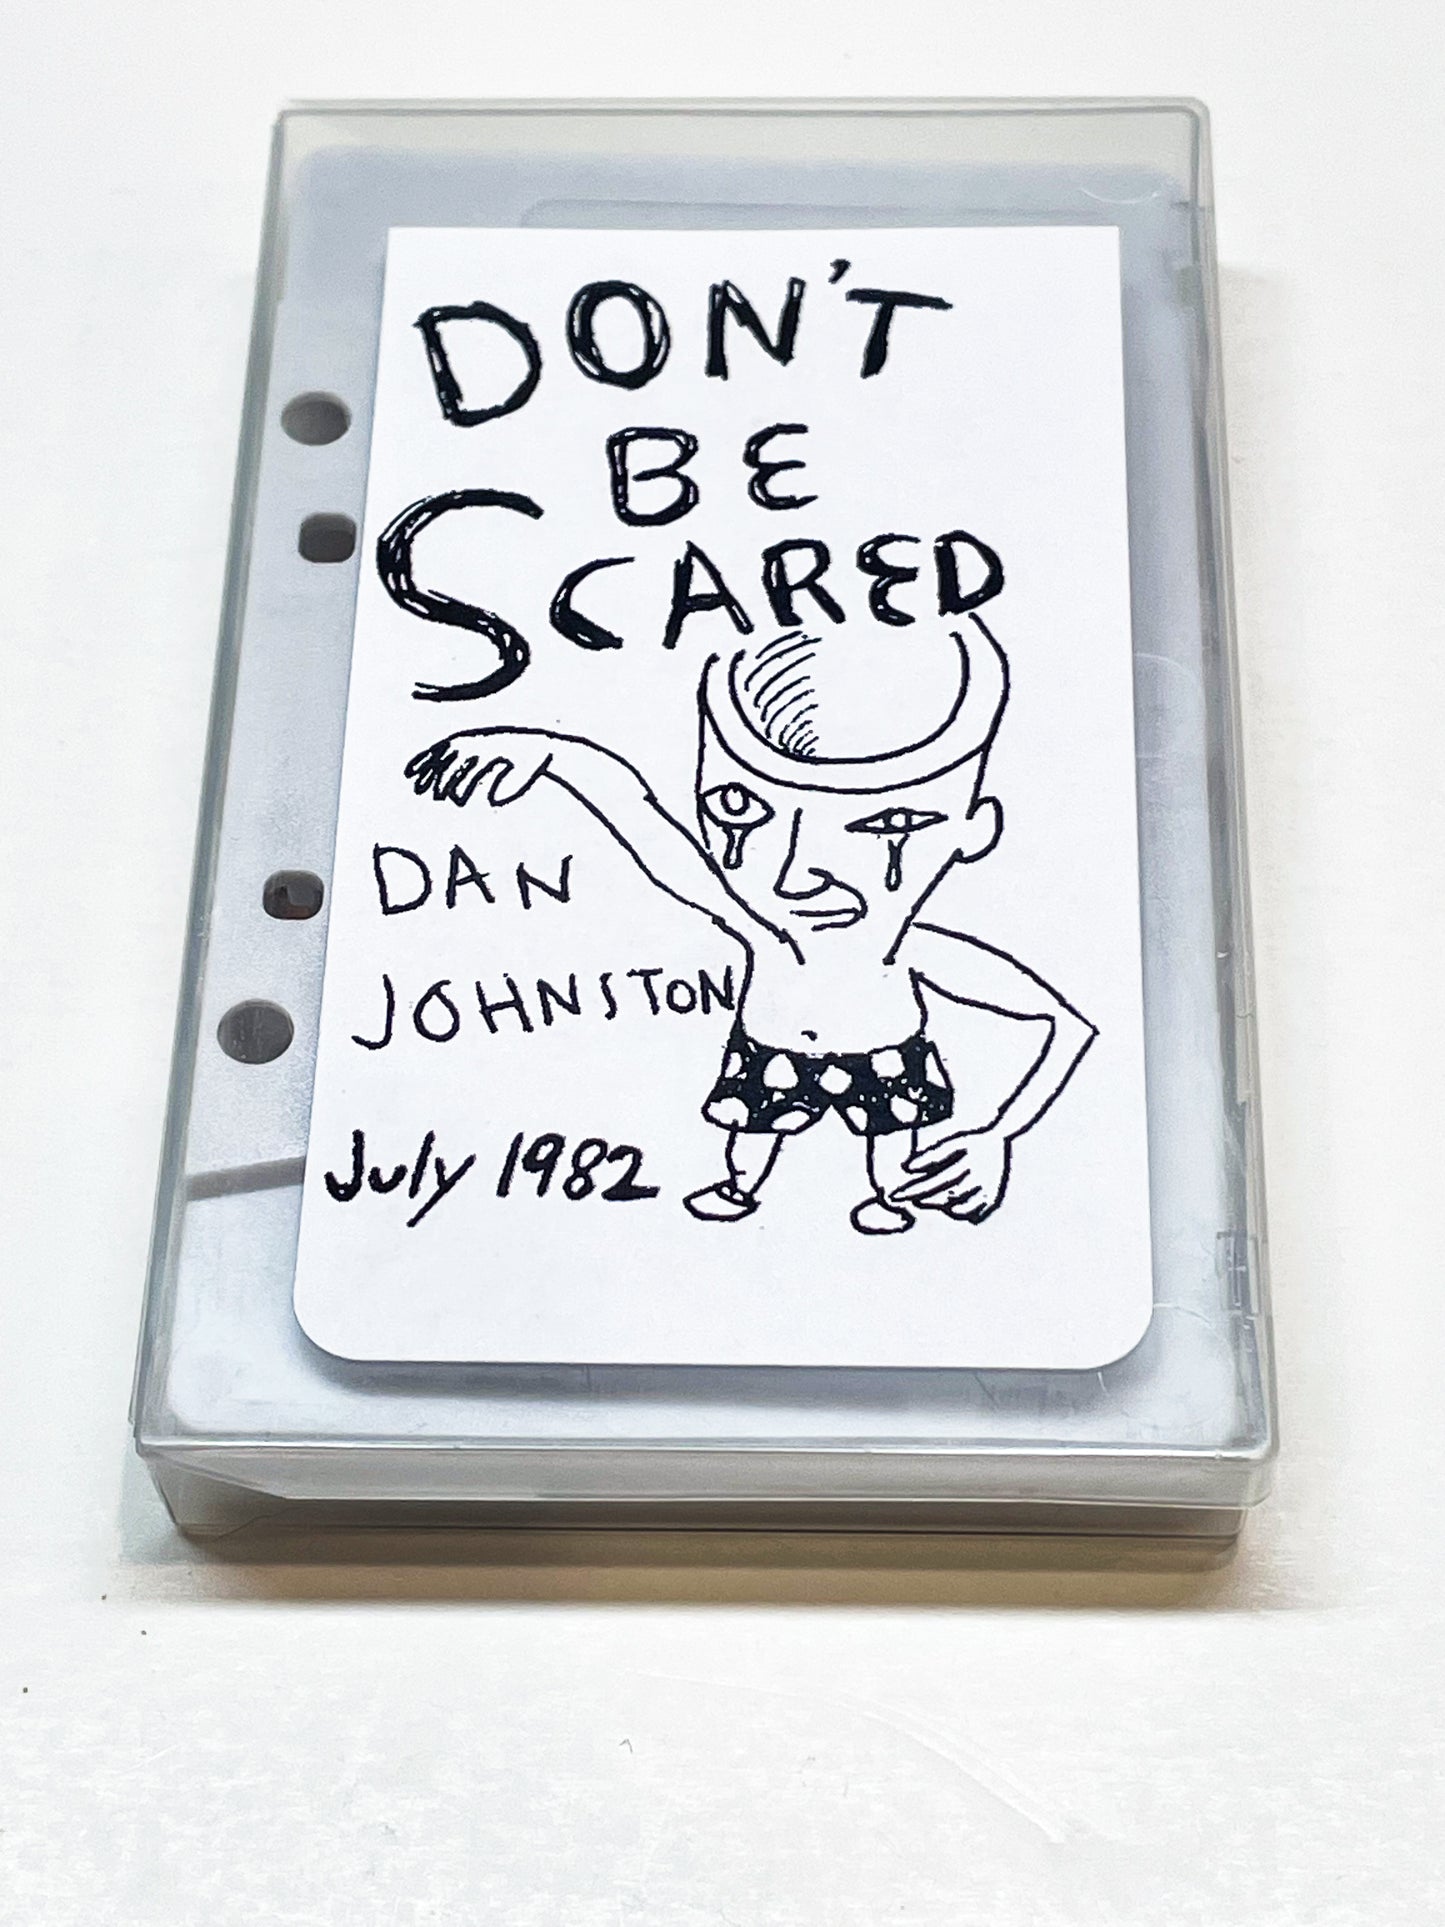 DON'T
BE
SCARED
DAN
JOHNSTON
July 1982